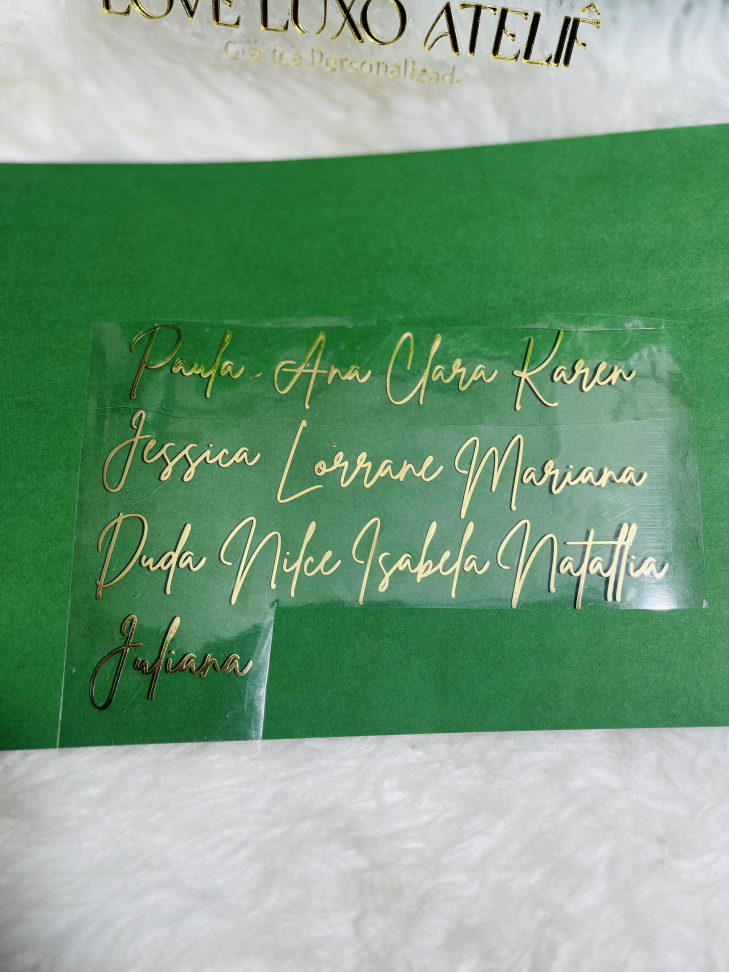 LOVE LUXO ATELIÊ
Gráfica Personalizada
Paula - Ana Clara Karen
Jessica Lorrane Mariana
Duda Nilce Isabela Natallia
Juliana